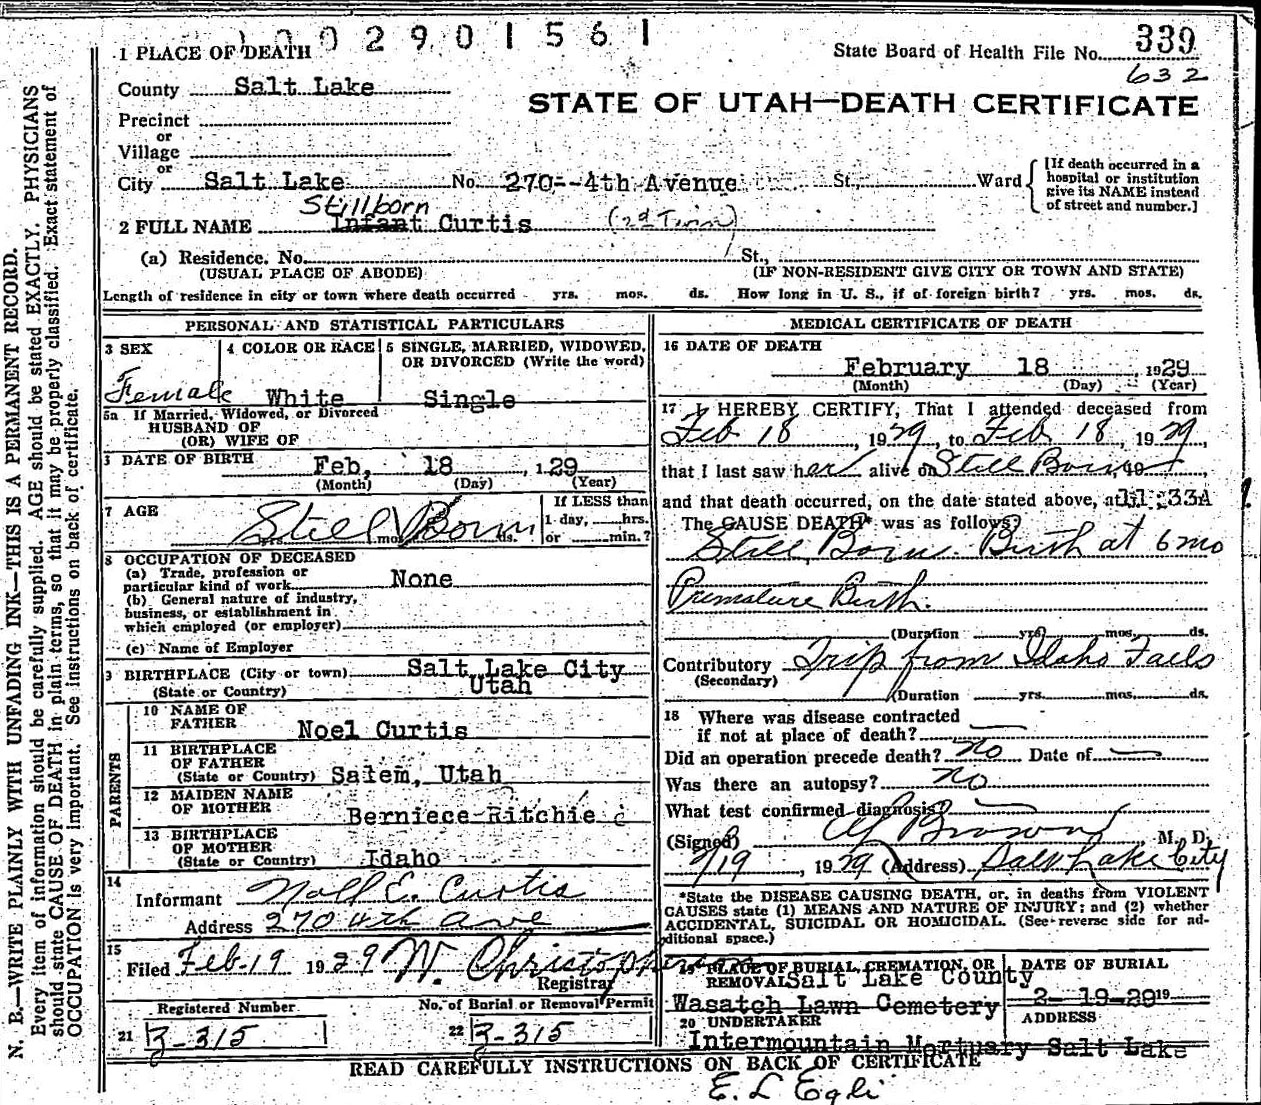 1 0 0 2 9 0 1 5 6 1
1 PLACE OF DEATH
State Board of Health File No. 339
632
County Salt Lake
STATE OF UTAH—DEATH CERTIFICATE
Precinct
or
Village
or
City Salt Lake No. 270--4th Avenue St., Ward
[If death occurred in a hospital or institution give its NAME instead of street and number.]
Stillborn
2 FULL NAME Infant Curtis (2d Twin)
(a) Residence. No. St.,
(USUAL PLACE OF ABODE) (IF NON-RESIDENT GIVE CITY OR TOWN AND STATE)
Length of residence in city or town where death occurred yrs. mos. ds. How long in U. S., if of foreign birth? yrs. mos. ds.
PERSONAL AND STATISTICAL PARTICULARS
3 SEX 4 COLOR OR RACE 5 SINGLE, MARRIED, WIDOWED, OR DIVORCED (Write the word)
Female White Single
5a If Married, Widowed, or Divorced
HUSBAND OF
(OR) WIFE OF
DATE OF BIRTH Feb, 18 1929
(Month) (Day) (Year)
7 AGE Still Born
mos. ds.
If LESS than
1 day, hrs.
or min.?
8 OCCUPATION OF DECEASED
(a) Trade, profession or
particular kind of work None
(b) General nature of industry,
business, or establishment in
which employed (or employer)
(c) Name of Employer
9 BIRTHPLACE (City or town) Salt Lake City
(State or Country) Utah
PARENTS
10 NAME OF
FATHER Noel Curtis
11 BIRTHPLACE
OF FATHER
(State or Country) Salem, Utah
12 MAIDEN NAME
OF MOTHER Berniece Ritchie
13 BIRTHPLACE
OF MOTHER
(State or Country) Idaho
14
Informant Noll E. Curtis
Address 270 4th ave
15
Filed Feb-19 1929 W. Christopherson
Registrar
Registered Number No. of Burial or Removal Permit
21 Z-315 22 Z-315
MEDICAL CERTIFICATE OF DEATH
16 DATE OF DEATH
February 18, 1929
(Month) (Day) (Year)
17 I HEREBY CERTIFY, That I attended deceased from
Feb 18, 1929, to Feb 18, 1929,
that I last saw her alive on Still Born, 19
and that death occurred, on the date stated above, at 11:33A
The CAUSE DEATH* was as follows:
Still Born. Birth at 6 mo
Premature Birth.
(Duration yrs. mos. ds.
Contributory Trip from Idaho Falls
(Secondary)
(Duration yrs. mos. ds.
18 Where was disease contracted
if not at place of death?
Did an operation precede death? no Date of
Was there an autopsy? no
What test confirmed diagnosis?
(Signed) Brown M. D.
2/19 1929 (Address) Salt Lake City
*State the DISEASE CAUSING DEATH, or, in deaths from VIOLENT
CAUSES state (1) MEANS AND NATURE OF INJURY; and (2) whether
ACCIDENTAL, SUICIDAL OR HOMICIDAL. (See reverse side for ad-
ditional space.)
19 PLACE OF BURIAL, CREMATION, OR
REMOVAL Salt Lake County
Wasatch Lawn Cemetery
DATE OF BURIAL
2- 19-29 19
20 UNDERTAKER ADDRESS
Intermountain Mortuary Salt Lake
READ CAREFULLY INSTRUCTIONS ON BACK OF CERTIFICATE
E. L Egli
N. B.—WRITE PLAINLY WITH UNFADING INK—THIS IS A PERMANENT RECORD.
Every item of information should be carefully supplied. AGE should be stated EXACTLY. PHYSICIANS
should state CAUSE OF DEATH in plain terms, so that it may be properly classified. Exact statement of
OCCUPATION is very important. See instructions on back of certificate.